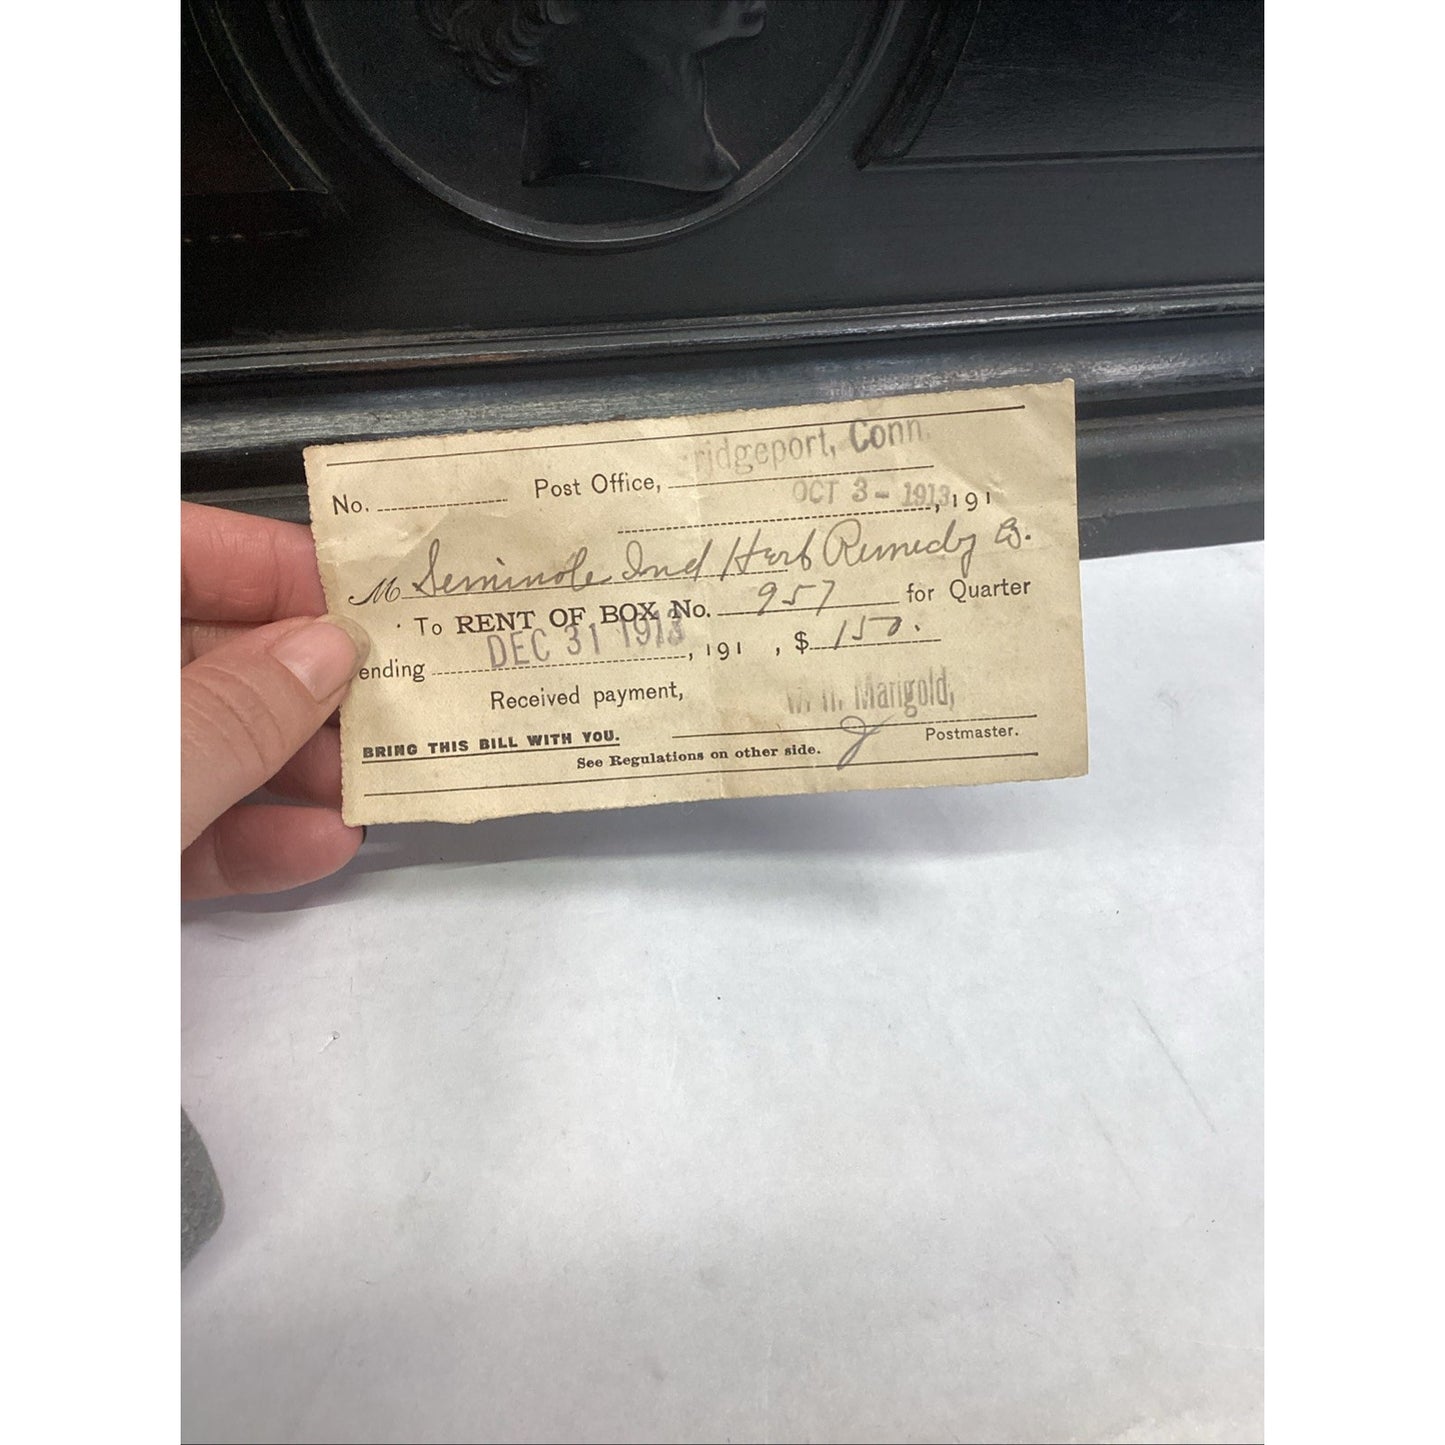 Bridgeport, Conn.
No. Post Office,
OCT 3 - 1913, 191
M Seminole Ind Herb Remedy Co.
To RENT OF BOX No. 957 for Quarter
ending DEC 31 1913, 191 , $ 150.
Received payment,
W. H. Marigold,
BRING THIS BILL WITH YOU.
Postmaster.
See Regulations on other side.